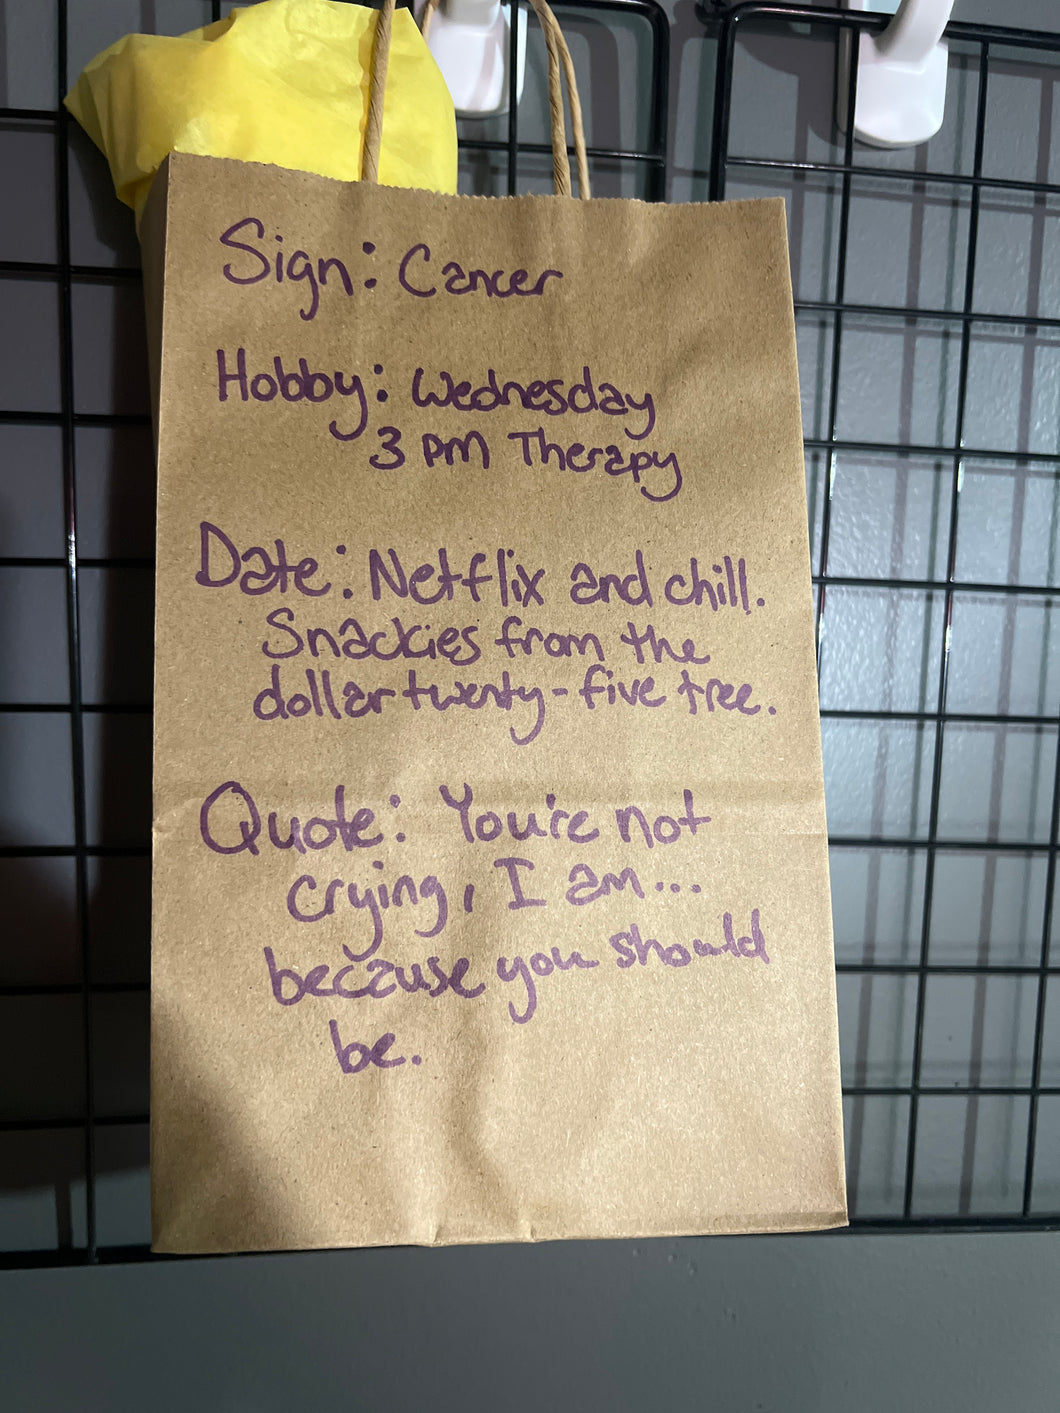 Sign: Cancer
Hobby: Wednesday
3 PM Therapy
Date: Netflix and chill.
Snackies from the
dollar twenty-five tree.
Quote: You're not
crying, I am...
because you should
be.